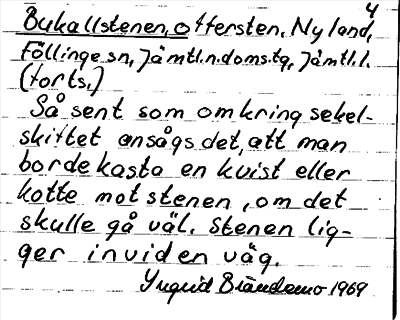 4
Bukallstenen, offersten, Nyland,
Föllinge sn, Jämtl.n.doms.tg, Jämtl.l.
(forts.)
Så sent som omkring sekel-
skiftet ansågs det, att man
borde kasta en kvist eller
kotte mot stenen, om det
skulle gå väl. Stenen lig-
ger invid en väg.
Yngrid Brändemo 1969